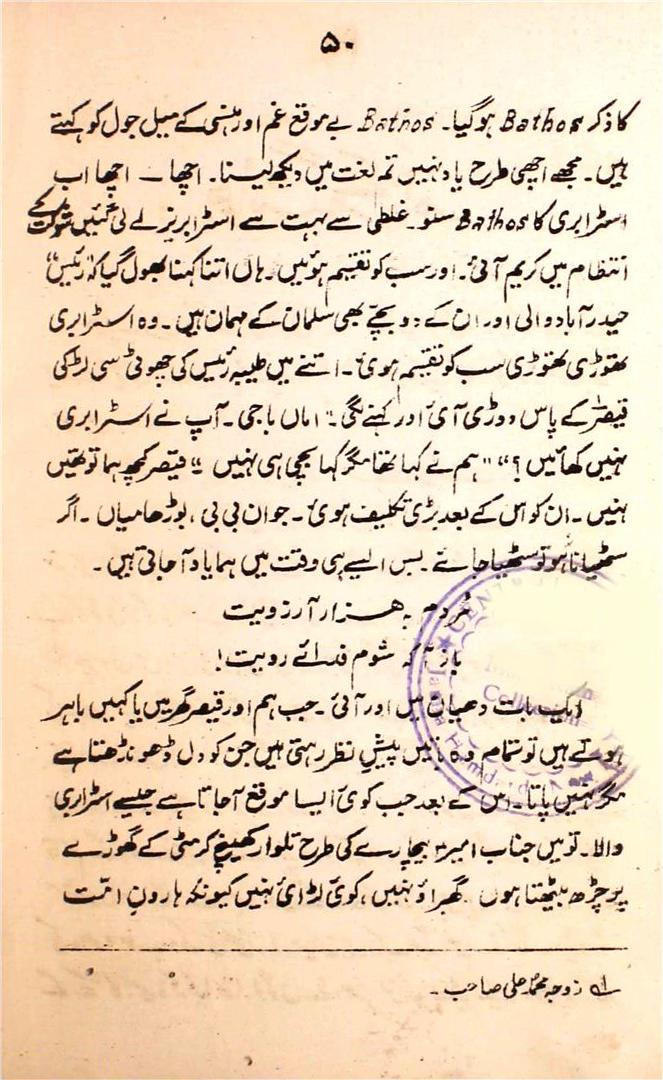 ۵۰
کا ذکر Bathos ہوگیا۔ Bathos بے موقع غم اور ہنسی کے میل جول کو کہتے
ہیں۔ مجھے اچھی طرح یاد نہیں تم لغت میں دیکھ لینا۔ اچھا — اچھا اب
اسٹرابری کا Bathos سنو۔ غلطی سے بہت سے اسٹرابریز لے لی گئیں شوکت کے
انتظام میں کریم آئی۔ اور سب کو تقیسم ہوئیں۔ ہاں اتنا کہنا بھول گیا کہ رئیس
حیدرآباد والی اور ان کے دو بچے بھی سلمان کے مہمان ہیں۔ وہ اسٹرابری
تھوڑی تھوڑی سب کو تقیسم ہوئی۔ اتنے میں طیبہ رئیس کی چھوٹی سی لڑکی
قیصر کے پاس دوڑی آئی اور کہنے لگی۔ "اماں باجی۔ آپ نے اسٹرابری
نہیں کھائیں؟" "ہم نے کہا تھا مگر کہا بچی ہی نہیں" قیصر کچھ ہما تو تھیں
نہیں۔ ان کو اس کے بعد بڑی تکلیف ہوئی۔ جوان بی بی، بوڑھا میاں۔ اگر
سٹھیانا ہو تو سٹھیا جائے۔ بس ایسے ہی وقت میں ہما یاد آجاتی ہیں۔
مُردم بہ ہزار آرزویت
باز آ کہ شوم فدائے رویت!
ایک بات دھیان میں اور آئی۔ جب ہم اور قیصر گھر میں یا کہیں باہر
ہوتے ہیں تو تمام وہ باتیں پیش نظر رہتی ہیں جن کو دل ڈھونڈھتا ہے
مگر نہیں پاتا۔ اس کے بعد جب کوئی ایسا موقع آجاتا ہے جیسے اسٹرابری
والا۔ تو میں جناب امیر بیچارے کی طرح تلوار کھینچ کر مٹی کے گھوڑے
پر چڑھ بیٹھتا ہوں۔ گھبراؤ نہیں، کوئی لڑائی نہیں کیونکہ ہارونِ امت
لہ زوجہ محمد علی صاحب۔